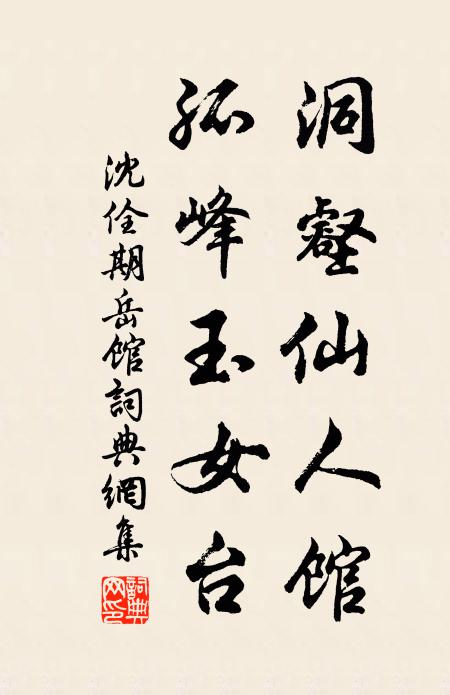 洞壑仙人馆
孤峰玉女台
沈佺期岳馆詞典網集
詞典网印